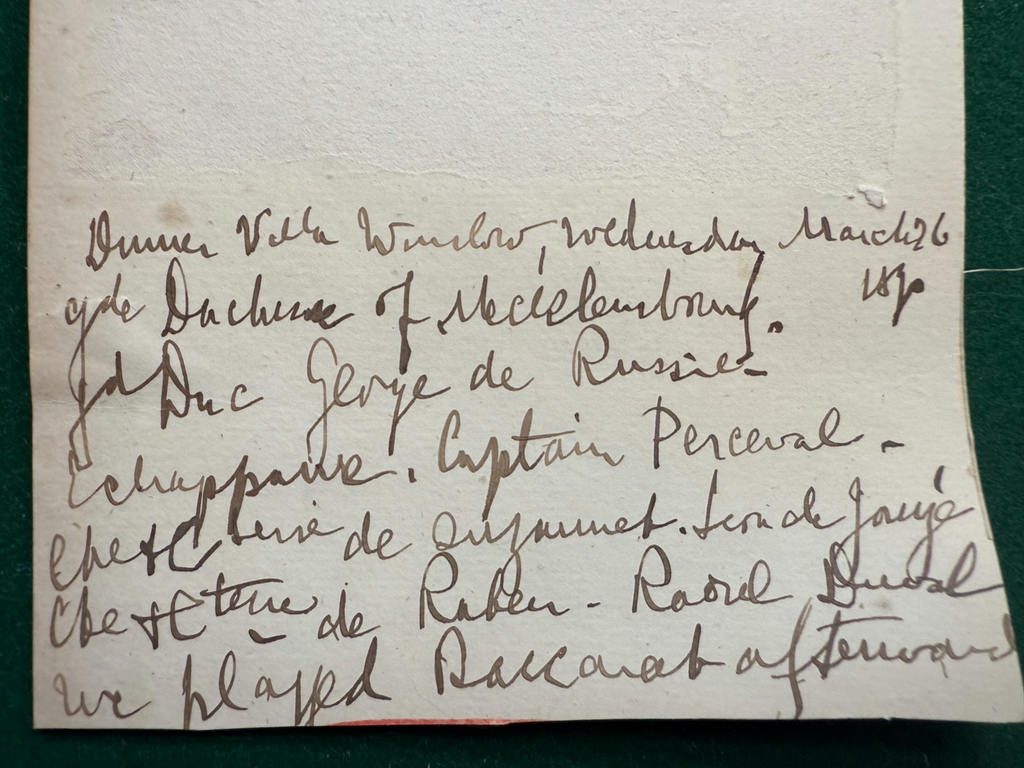 Dinner Villa Winslow, Wednesday March 26
1890
gde Duchesse of Mecklembourg.
gd Duc George de Russie -
Captain Perceval -
Cte & Ctesse de Suzannet. Léon de
Cte & Ctesse de Raben - Raoul Duval
we played Baccarat afterward